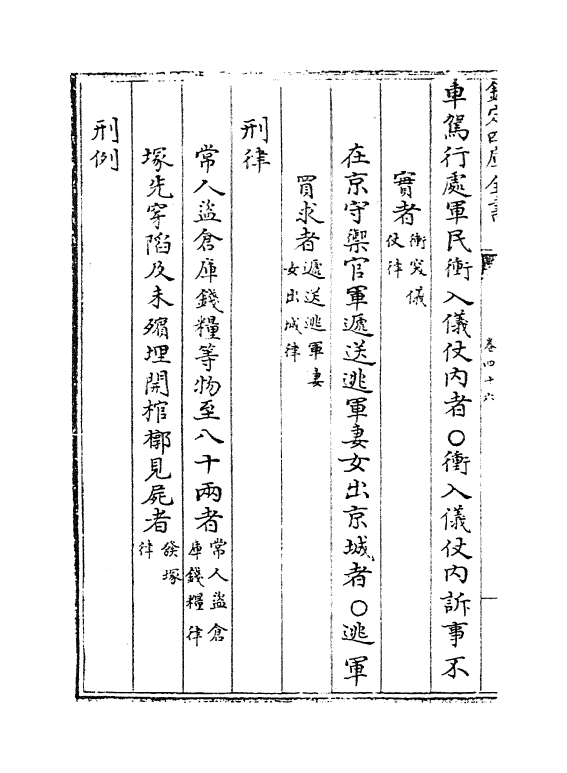 欽定四庫全書
卷四十六
車駕行處軍民衝入儀仗內者○衝入儀仗內訴事不
實者衝突儀仗律
在京守禦官軍遞送逃軍妻女出京城者○逃軍
買求者遞送逃軍妻女出城律
刑律
常人盜倉庫錢糧等物至八十兩者常人盜倉庫錢糧律
塚先穿陷及未殯埋開棺槨見屍者發塚律
刑例